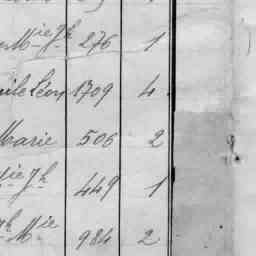 Mie Jh 276 1
ile Léon 1709 4
Marie 506 2
ie Jh 449 1
Jh Mie 984 2